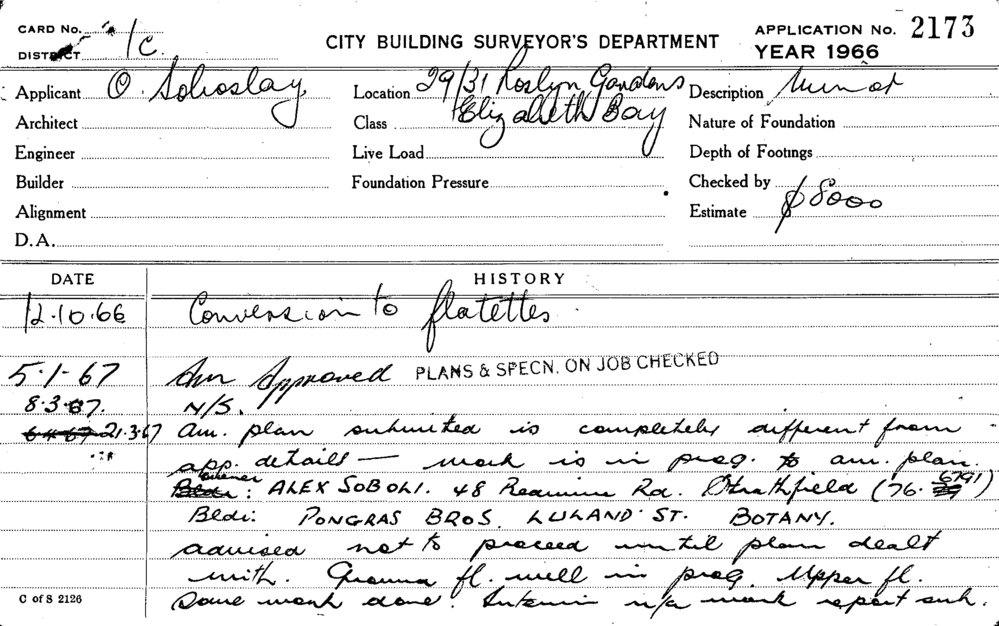 CARD No.
DISTRICT /c.
CITY BUILDING SURVEYOR'S DEPARTMENT
APPLICATION No. 2173
YEAR 1966
Applicant O. Soboslay
Location 29/31 Roslyn Gardens
Elizabeth Bay
Description
Architect
Class
Nature of Foundation
Engineer
Live Load
Depth of Footings
Builder
Foundation Pressure
Checked by
Alignment
Estimate $8000
D.A.
DATE HISTORY
12.10.66 Conversion to flatettes.
5.1-67 Approved PLANS & SPECN. ON JOB CHECKED
8.3.67. N/S.
21.3.67 am. plan submitted is completely different from
app. details — work is in prog. to am. plan.
owner: ALEX SOBOLI. 48 Rd. Strathfield (76. 6791)
Bldr: PONGRAS BROS. LULAND ST. BOTANY.
advised not to proceed until plan dealt
with. Ground fl. well in prog. Upper fl.
some work done. Interim n/a work report sub.
C of S 2126